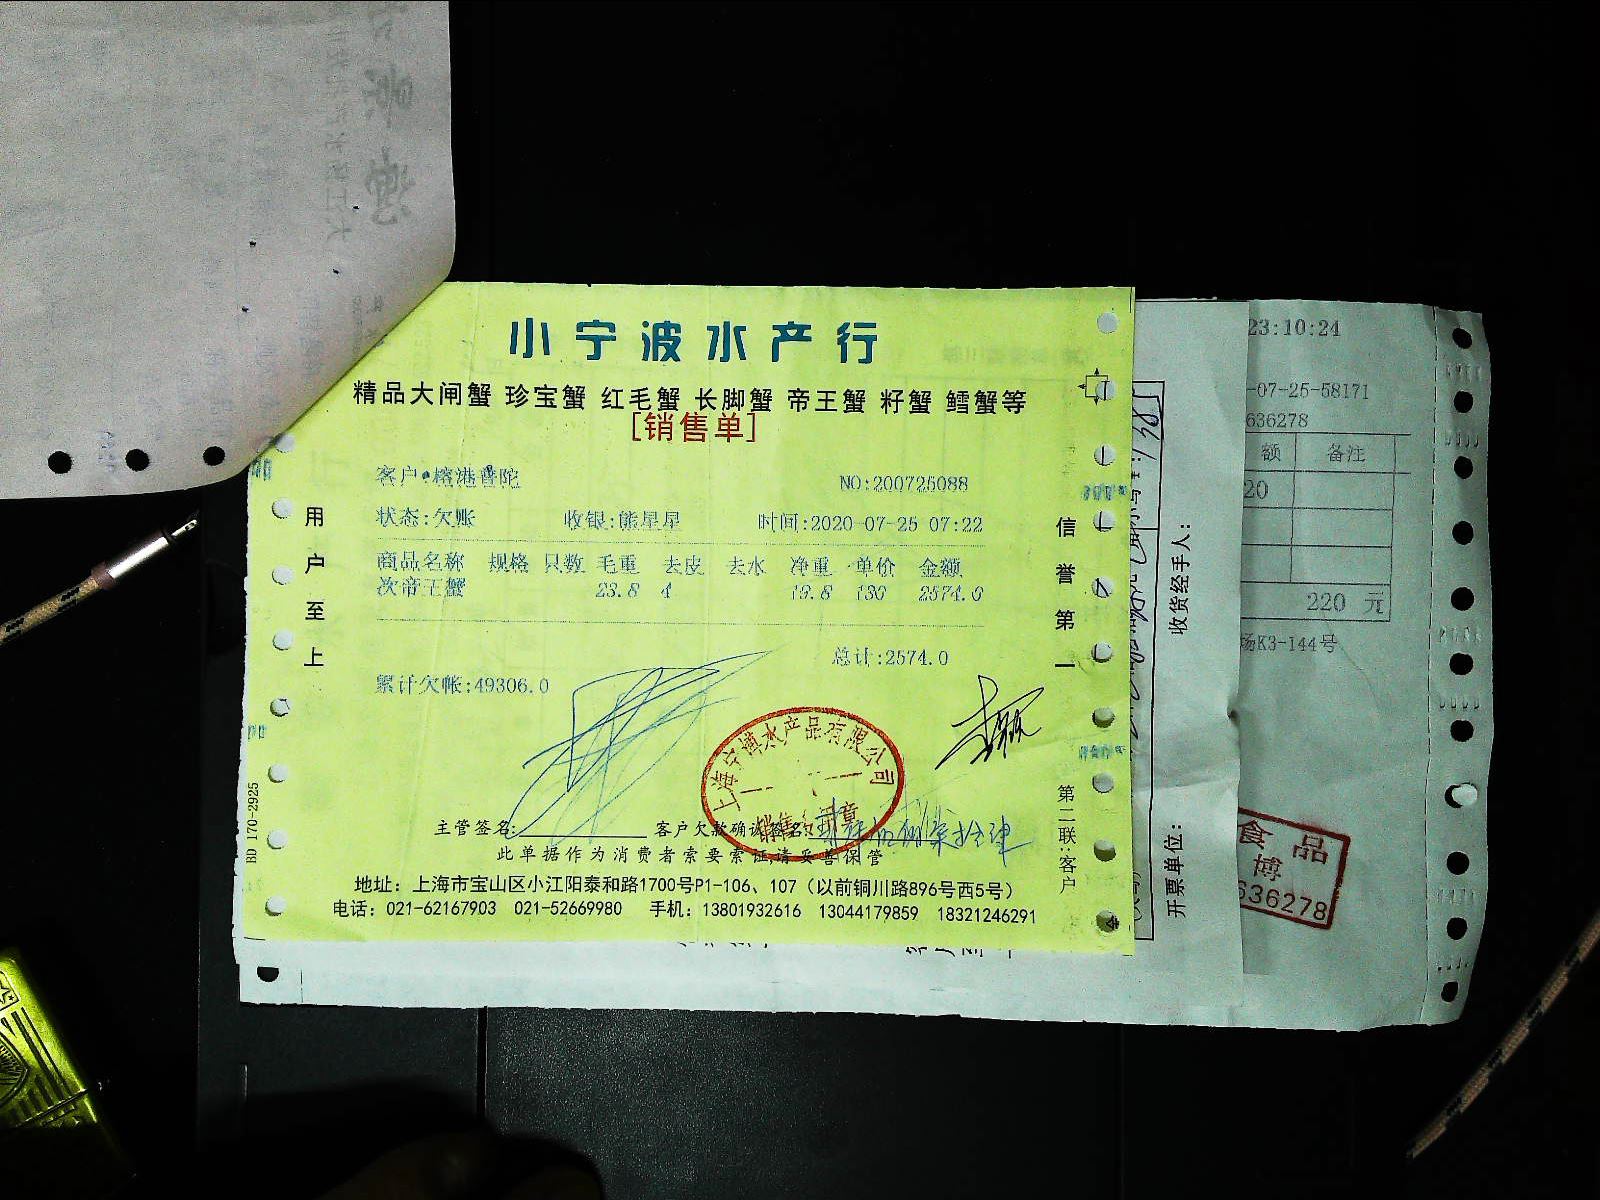 小宁波水产行
精品大闸蟹 珍宝蟹 红毛蟹 长脚蟹 帝王蟹 籽蟹 鳕蟹等
[销售单]
客户:榕港普陀
NO:200725088
状态:欠账 收银:熊星星 时间:2020-07-25 07:22
商品名称 规格 只数 毛重 去皮 去水 净重 单价 金额
次帝王蟹 23.8 4 19.8 130 2574.0
总计:2574.0
累计欠帐:49306.0
用户至上
信誉第一
上海宁博水产品有限公司
销售专用章
主管签名: 客户欠款确认签名:
此单据作为消费者索要索证,请妥善保管
地址：上海市宝山区小江阳泰和路1700号P1-106、107（以前铜川路896号西5号）
电话：021-62167903 021-52669980 手机：13801932616 13044179859 18321246291
第二联:客户
BD 170-2925
收货经手人:
开票单位:
23:10:24
-07-25-58171
636278
额 备注
20
220 元
场K3-144号
食品
博
636278